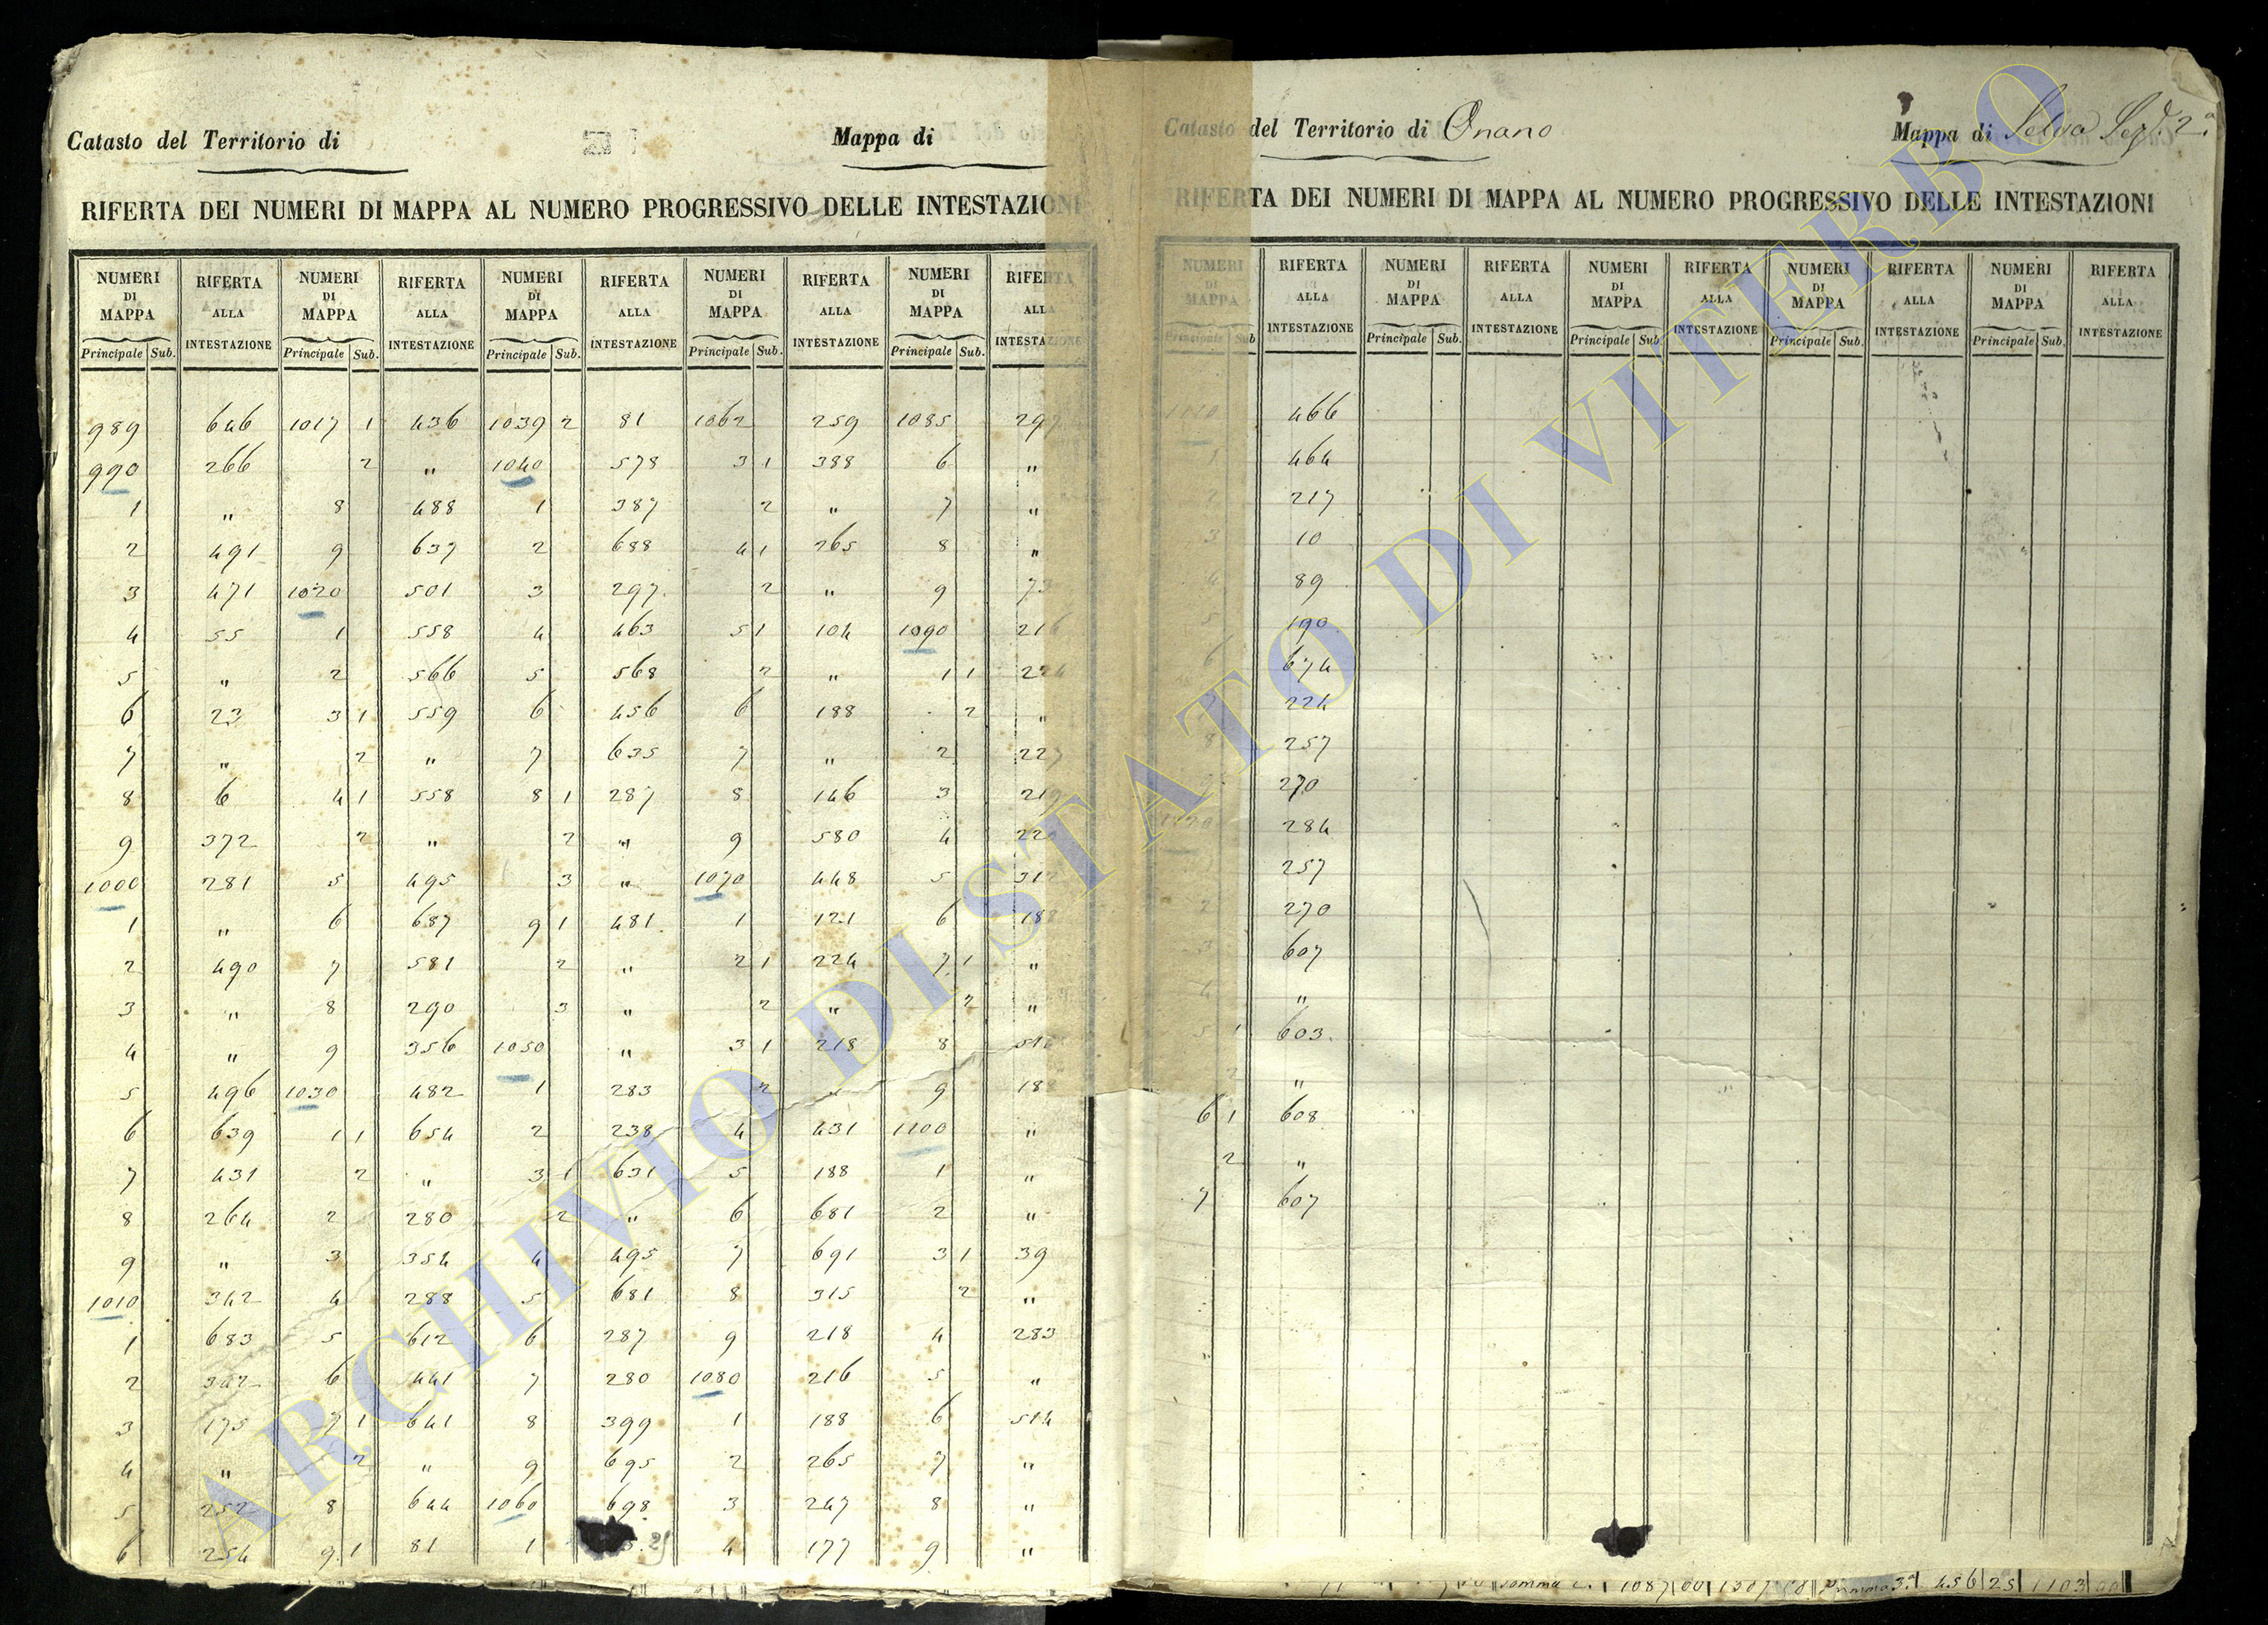 Catasto del Territorio di Mappa di
RIFERTA DEI NUMERI DI MAPPA AL NUMERO PROGRESSIVO DELLE INTESTAZIONI
NUMERI DI MAPPA RIFERTA ALLA INTESTAZIONE NUMERI DI MAPPA RIFERTA ALLA INTESTAZIONE NUMERI DI MAPPA RIFERTA ALLA INTESTAZIONE NUMERI DI MAPPA RIFERTA ALLA INTESTAZIONE NUMERI DI MAPPA RIFERTA ALLA INTESTAZIONE
Principale Sub. Principale Sub. Principale Sub. Principale Sub. Principale Sub.
989 646 1017 1 436 1039 2 81 1062 259 1085 297
990 266 2 " 1040 578 3 1 388 6 "
1 " 8 488 1 387 2 " 7 "
2 491 9 637 2 688 4 1 265 8 "
3 471 1020 501 3 297 2 " 9
4 55 1 558 4 463 5 1 104 1090 216
5 " 2 566 5 568 2 " 1 1 224
6 23 3 1 559 6 456 6 188 2 "
7 " 2 " 7 635 7 " 2 227
8 6 4 1 558 8 1 287 8 146 3 219
9 372 2 " 2 " 9 580 4 220
1000 281 5 495 3 " 1070 448 5 312
1 " 6 687 9 1 481 1 121 6 188
2 490 7 581 2 " 2 1 224 7 1 "
3 " 8 290 3 " 2 " 2 "
4 " 9 356 1050 " 3 1 218 8
5 496 1030 482 1 283 2 " 9 188
6 639 1 1 654 2 238 4 431 1100 "
7 431 2 " 3 1 631 5 188 1 "
8 264 2 280 2 " 6 681 2 "
9 " 3 354 4 495 7 691 3 1 39
1010 342 4 288 5 681 8 315 2 "
1 683 5 612 6 287 9 218 4 283
2 342 6 441 7 280 1080 216 5 "
3 175 7 1 641 8 399 1 188 6 514
4 " 2 " 9 695 2 265 7 "
5 252 8 644 1060 698 3 247 8 "
6 254 9 1 81 1 4 177 9 "
Catasto del Territorio di Onano Mappa di Selva Sez. 2.a
RIFERTA DEI NUMERI DI MAPPA AL NUMERO PROGRESSIVO DELLE INTESTAZIONI
NUMERI DI MAPPA RIFERTA ALLA INTESTAZIONE NUMERI DI MAPPA RIFERTA ALLA INTESTAZIONE NUMERI DI MAPPA RIFERTA ALLA INTESTAZIONE NUMERI DI MAPPA RIFERTA ALLA INTESTAZIONE NUMERI DI MAPPA RIFERTA ALLA INTESTAZIONE
Principale Sub Principale Sub. Principale Sub. Principale Sub. Principale Sub.
1110 466
1 464
2 217
3 10
4 89
5 190
6 674
7 224
8 257
270
1120 284
257
2 270
3 607
4 "
5 1 603.
2 "
6 1 608
2 "
7 607
ARCHIVIO DI STATO DI VITERBO